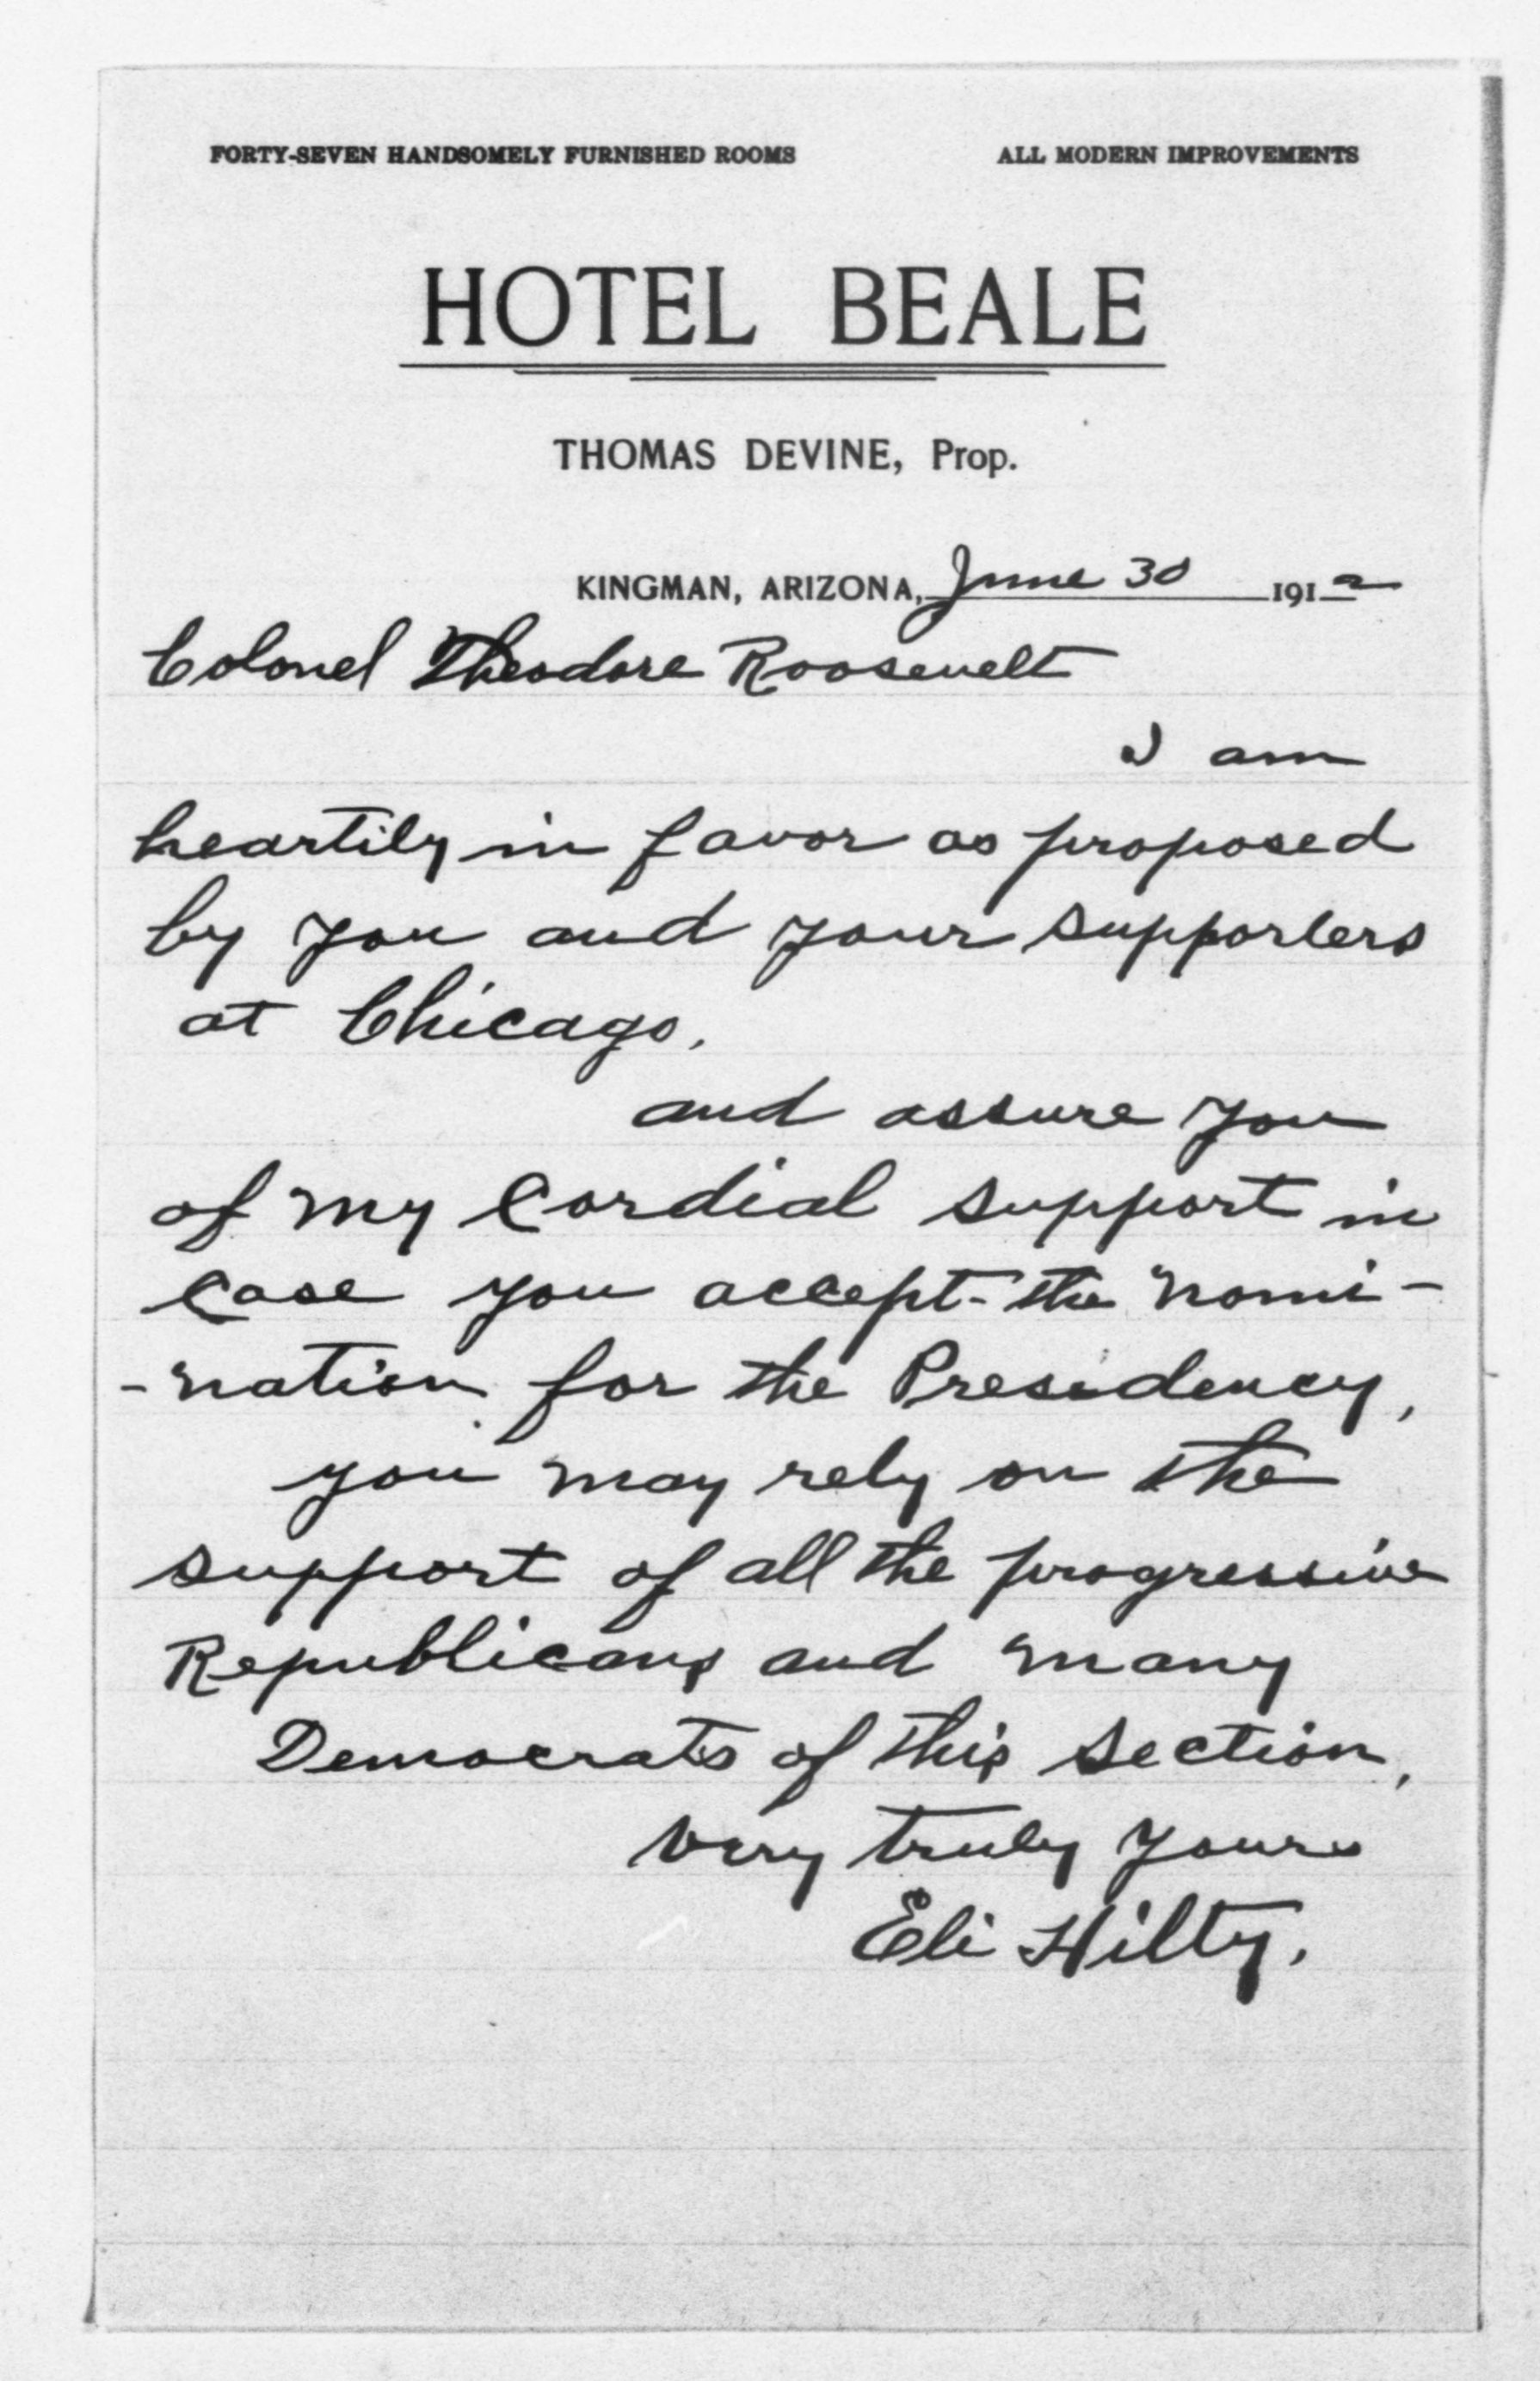 FORTY-SEVEN HANDSOMELY FURNISHED ROOMS ALL MODERN IMPROVEMENTS
HOTEL BEALE
THOMAS DEVINE, Prop.
KINGMAN, ARIZONA, June 30 1912
Colonel Theodore Roosevelt
I am
heartily in favor as proposed
by you and your supporters
at Chicago.
and assure you
of my Cordial support in
Case you accept the nomi-
-nation for the Presidency,
you may rely on the
support of all the progressive
Republicans and many
Democrats of this section,
Very truly yours
Eli Hilty.